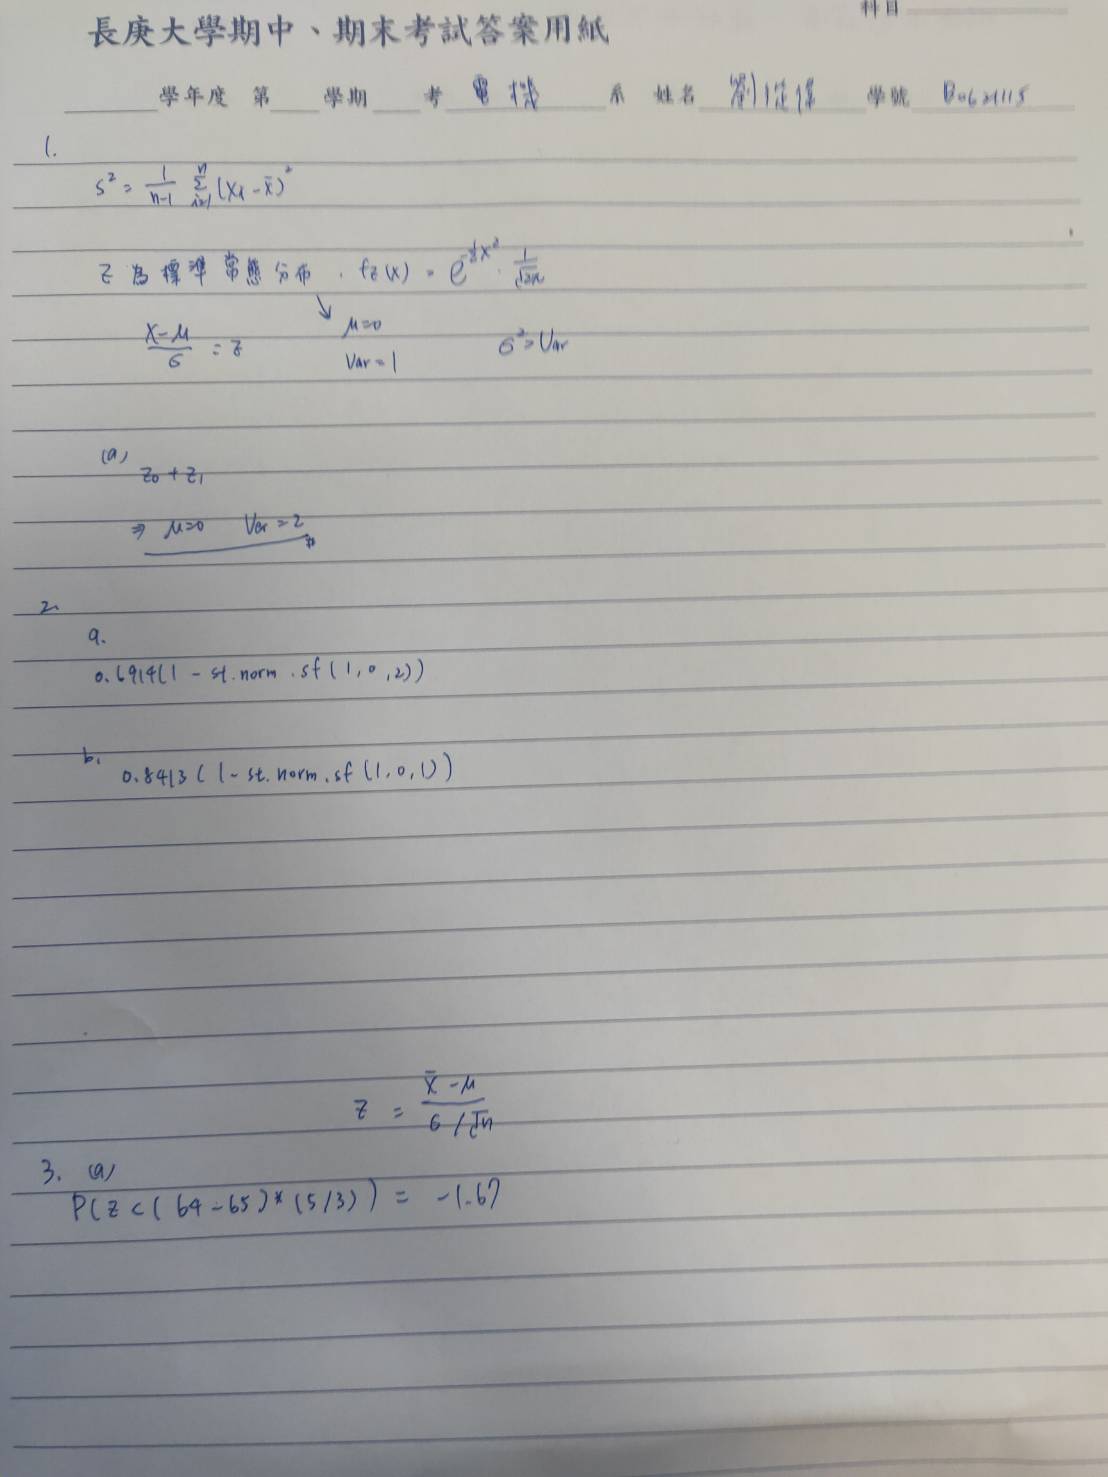 科目
長庚大學期中、期末考試答案用紙
學年度 第 學期 考 電機 系 姓名 劉 學號 B0621115
1.
s² = 1/(n-1) Σ_{i=1}^{n} (xi - x̄)²
Z 為標準常態分布 . fz(x) = e^{-½x²} · 1/√2π
(X-μ)/σ = z μ=0 σ² = Var
Var = 1
(a)
z0 + z1
⇒ μ=0 Var = 2
2.
a.
0.6914(1 - st.norm.sf(1,0,2))
b.
0.8413(1 - st.norm.sf(1,0,1))
z = (x̄ - μ)/(σ/√n)
3. (a)
P(z < (64-65)*(5/3)) = -1.67